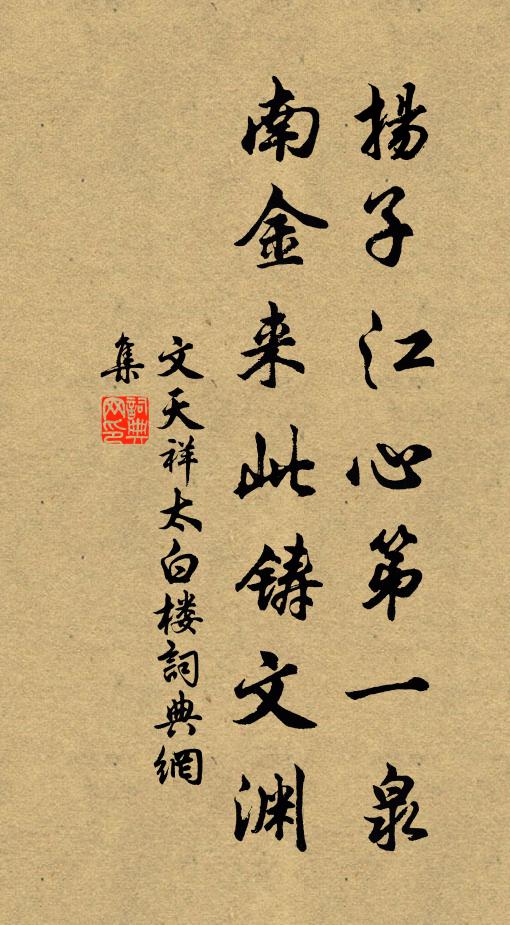 揚子江心第一泉
南金来此鑄文渊
文天祥太白楼詞典網
集
詞典网印